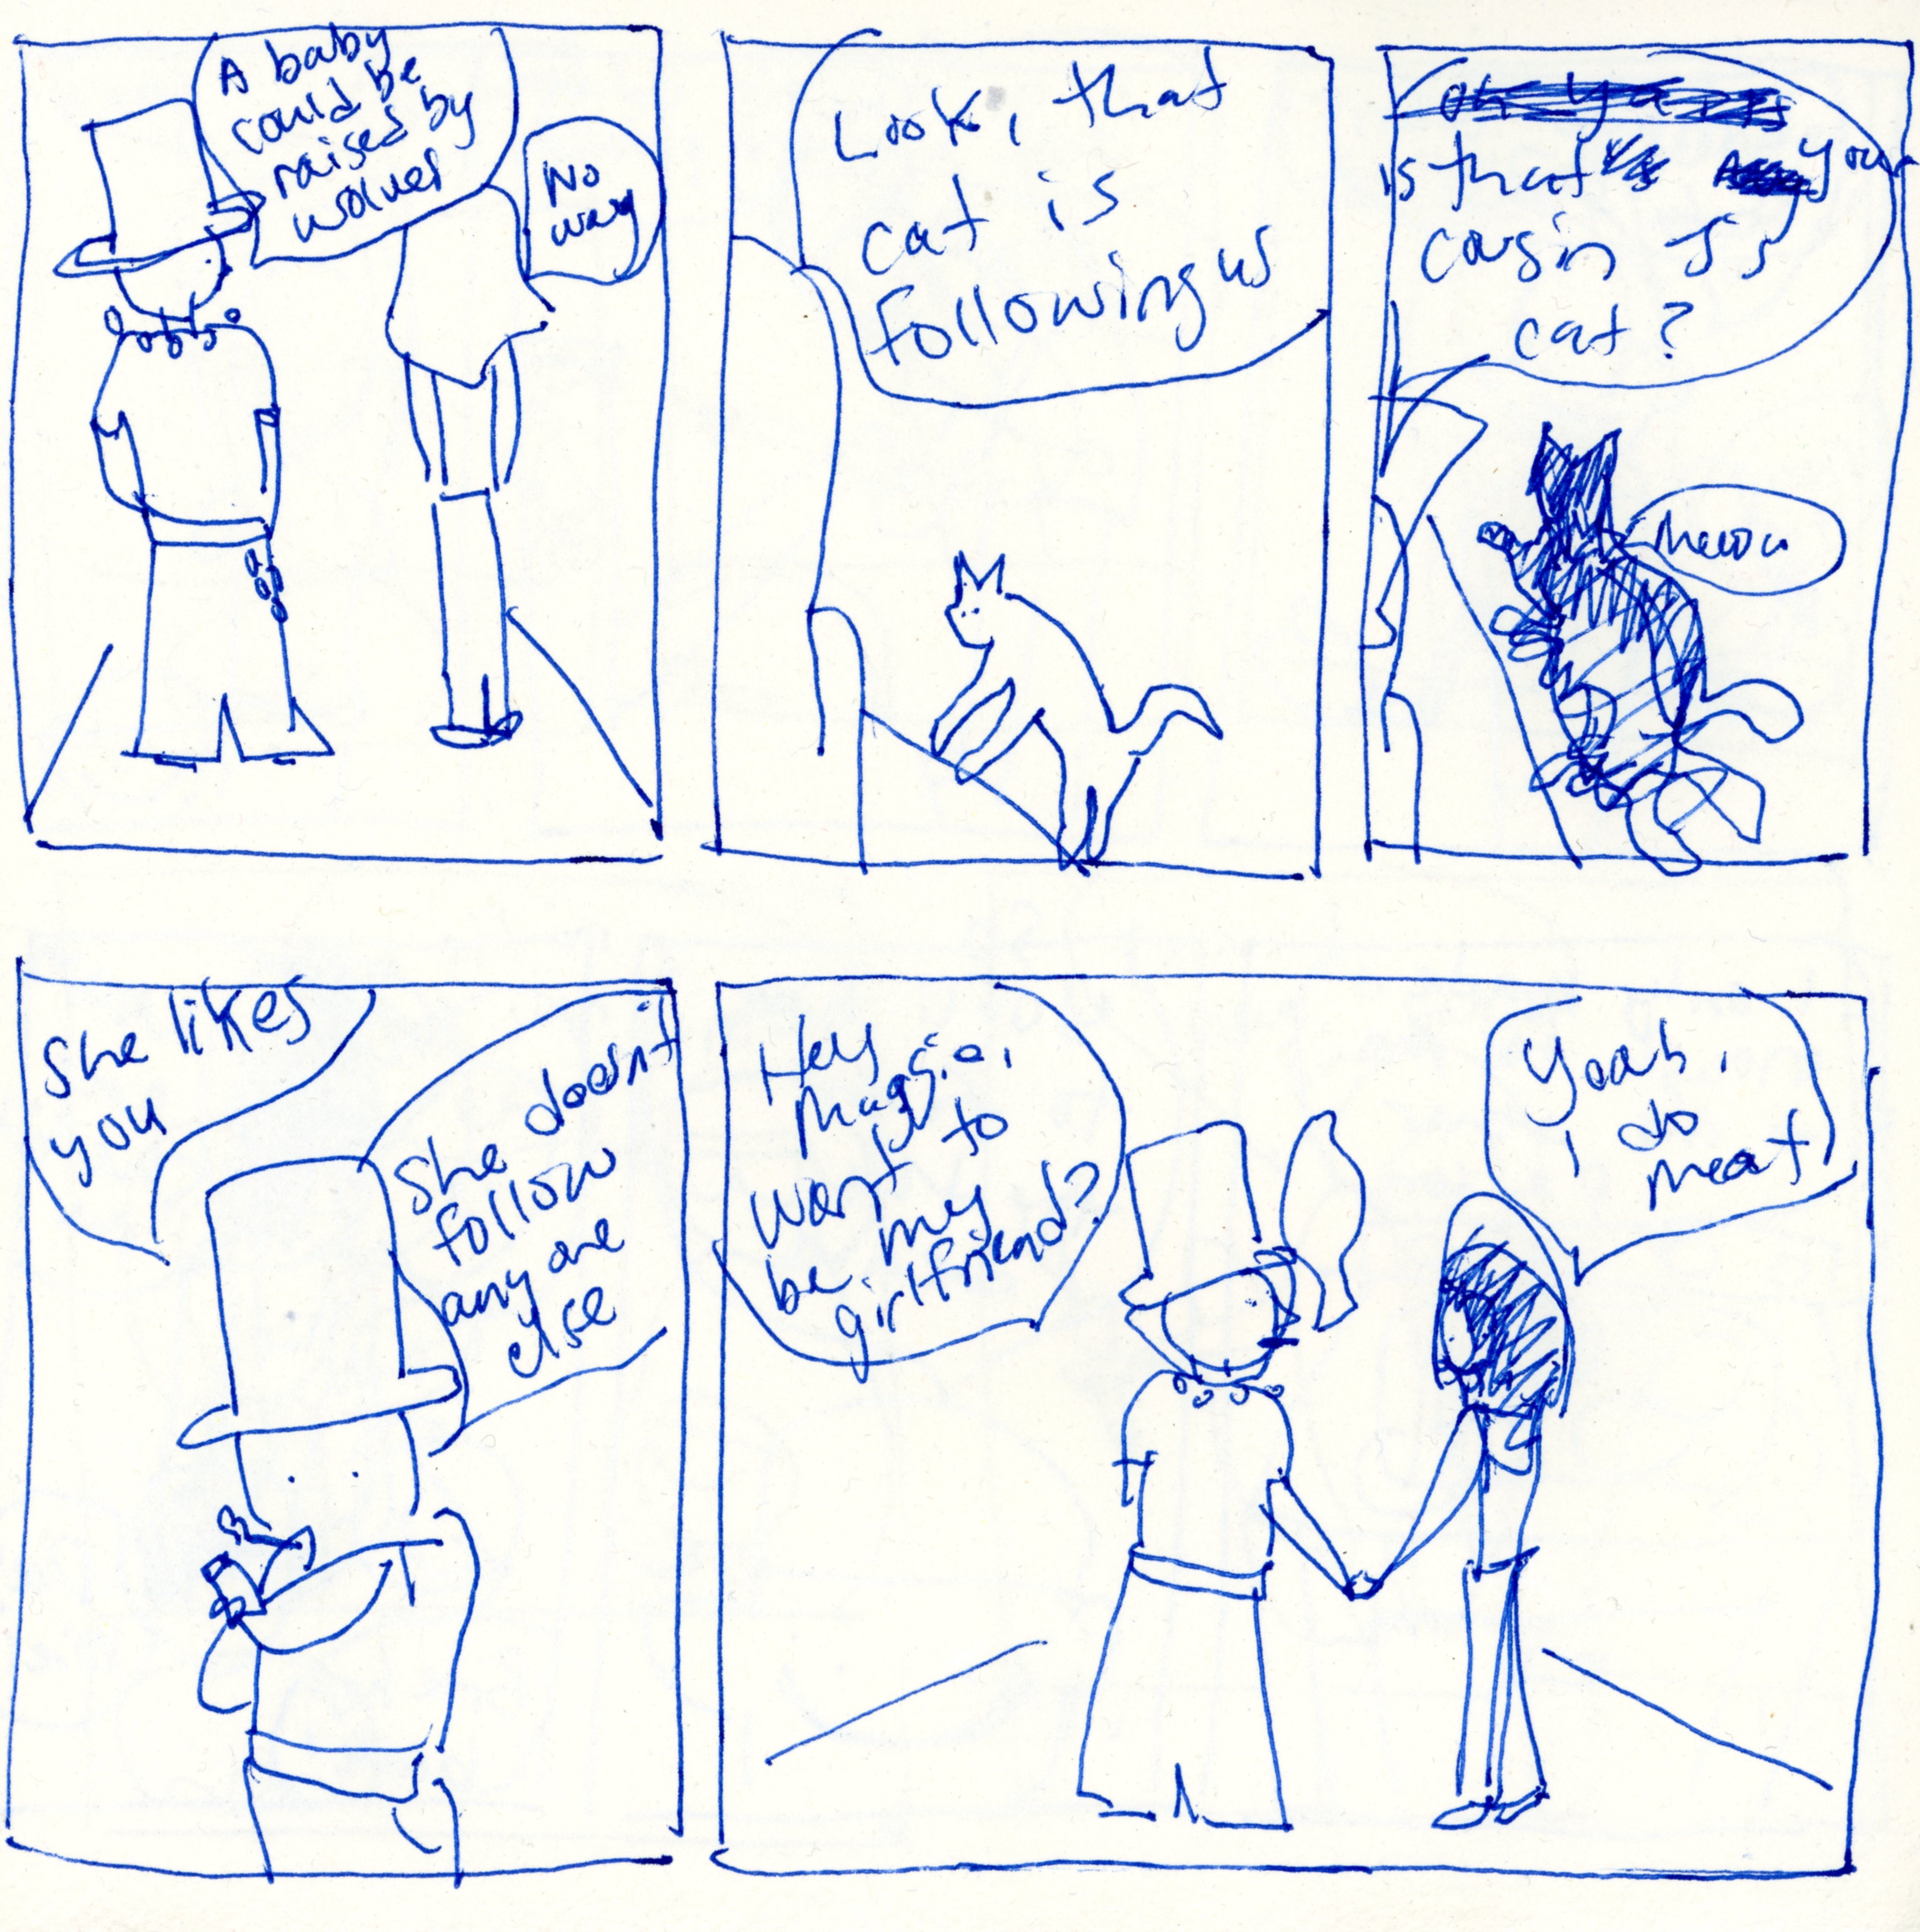 A baby
could be
raised by
wolves
No
way
Look, that
cat is
following us
is that your
cousin J's
cat?
Meow
She likes
you
She doesn't
follow
any one
else
Hey
Maggie,
want to
be my
girlfriend?
Yeah,
i do
meat